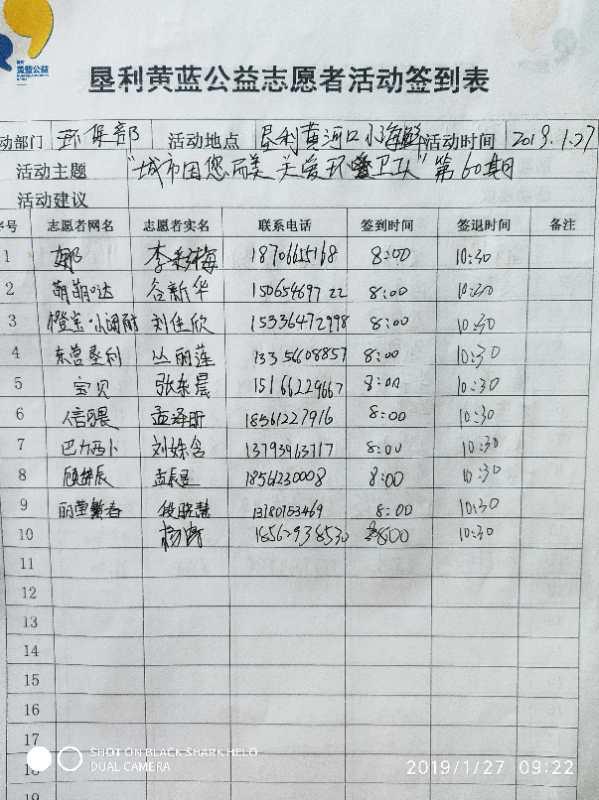 黄蓝公益
垦利黄蓝公益志愿者活动签到表
动部门 环保部 活动地点 垦利黄河口小海鲜 活动时间 2019.1.27
活动主题 “城市因您而美 关爱环卫队”第60期
活动建议
序号 志愿者网名 志愿者实名 联系电话 签到时间 签退时间 备注
1 娜 李彩梅 18706615168 8:00 10:30
2 萌萌哒 谷新华 15065469722 8:00 10:30
3 刘佳欣 15336472998 8:00 10:30
4 东营垦利 丛丽莲 13356608857 8:00 10:30
5 宝贝 张东晨 15166229667 8:00 10:30
6 18561227916 8:00 10:30
7 巴力西卜 刘姝含 13793963717 8:00 10:30
8 孟辰 18561230008 8:00 10:30
9 13780753469 8:00 10:30
10 18562938530 8:00 10:30
11
12
13
14
15
16
17
18
SHOT ON BLACK SHARK HELO
DUAL CAMERA
2019/1/27 09:22